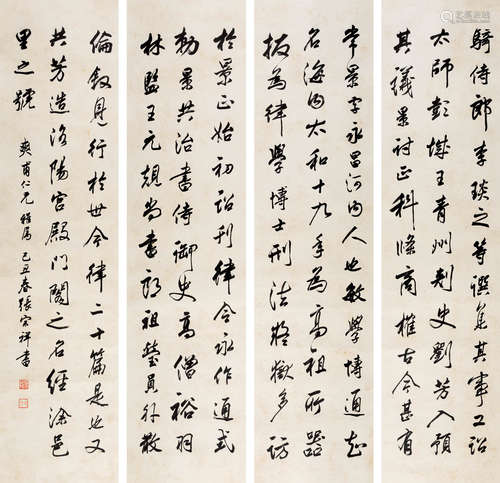 騎侍郎李琰之等譔集其事又詔
太師彭城王青州刺史劉芳入預
其議景討正科條商榷古今甚有
常景字永昌河內人也敏學博通知
名海內太和十九年為高祖所器
拔為律學博士刑法疑獄多訪
於景正始初詔刊律令永作通式
勅景共治書侍御史高僧裕羽
林監王元尚書郎祖瑩員外散
倫敘見行於世今律二十篇是也又
共芳造洛陽宮殿門閣之名經途邑
里之號
爽甫仁兄雅屬 己丑春張宗祥書